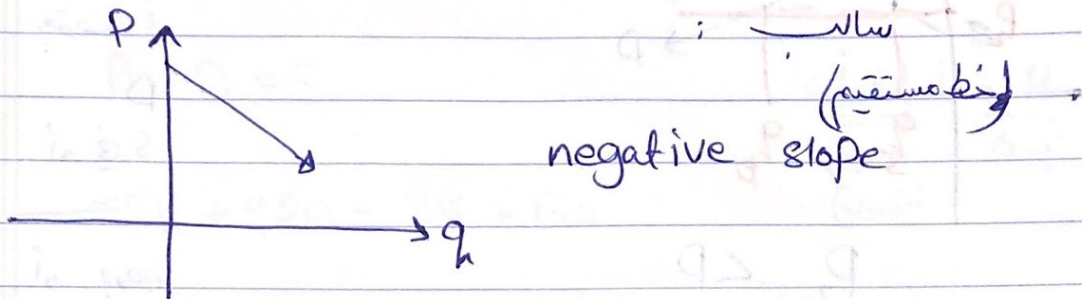 P
سالب :
(خط مستقيم)
negative slope
q